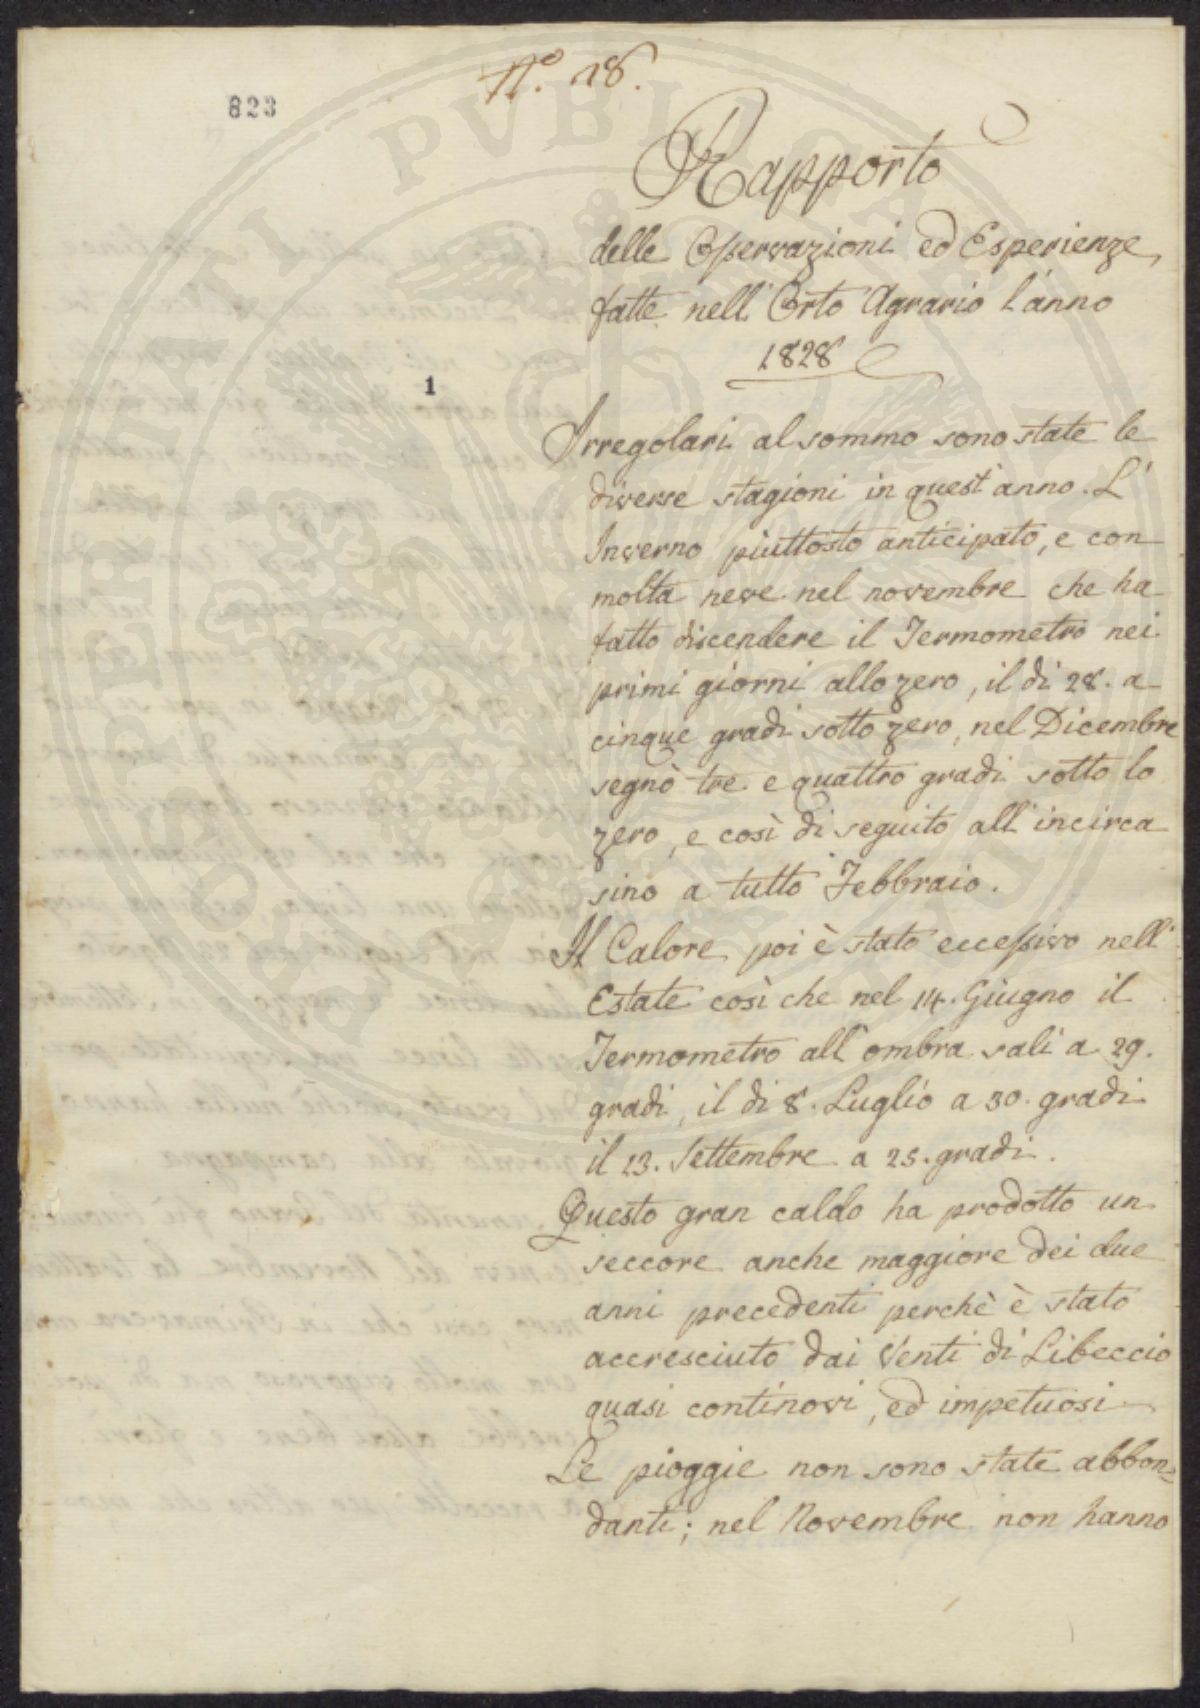 N.° 18.
823
Rapporto
delle Osservazioni ed Esperienze
fatte nell'Orto Agrario l'anno
1828
1
Irregolari al sommo sono state le
diverse stagioni in quest'anno. L'
Inverno piuttosto anticipato, e con
molta neve nel novembre che ha
fatto discendere il Termometro nei
primi giorni allo zero, il dì 28. a
cinque gradi sotto zero, nel Dicembre
segnò tre e quattro gradi sotto lo
zero, e così di seguito all'incirca
sino a tutto Febbraio.
Il Calore poi è stato eccessivo nell'
Estate così che nel 14. Giugno il
Termometro all'ombra salì a 29.
gradi, il dì 8. Luglio a 30. gradi
il 13. Settembre a 25. gradi.
Questo gran caldo ha prodotto un
seccore anche maggiore dei due
anni precedenti perchè è stato
accresciuto dai Venti di Libeccio
quasi continovi, ed impetuosi
Le pioggie non sono state abbon=
danti; nel Novembre non hanno